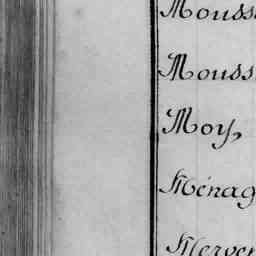 Mouss
Mouss
Moy,
Ménag
Merven